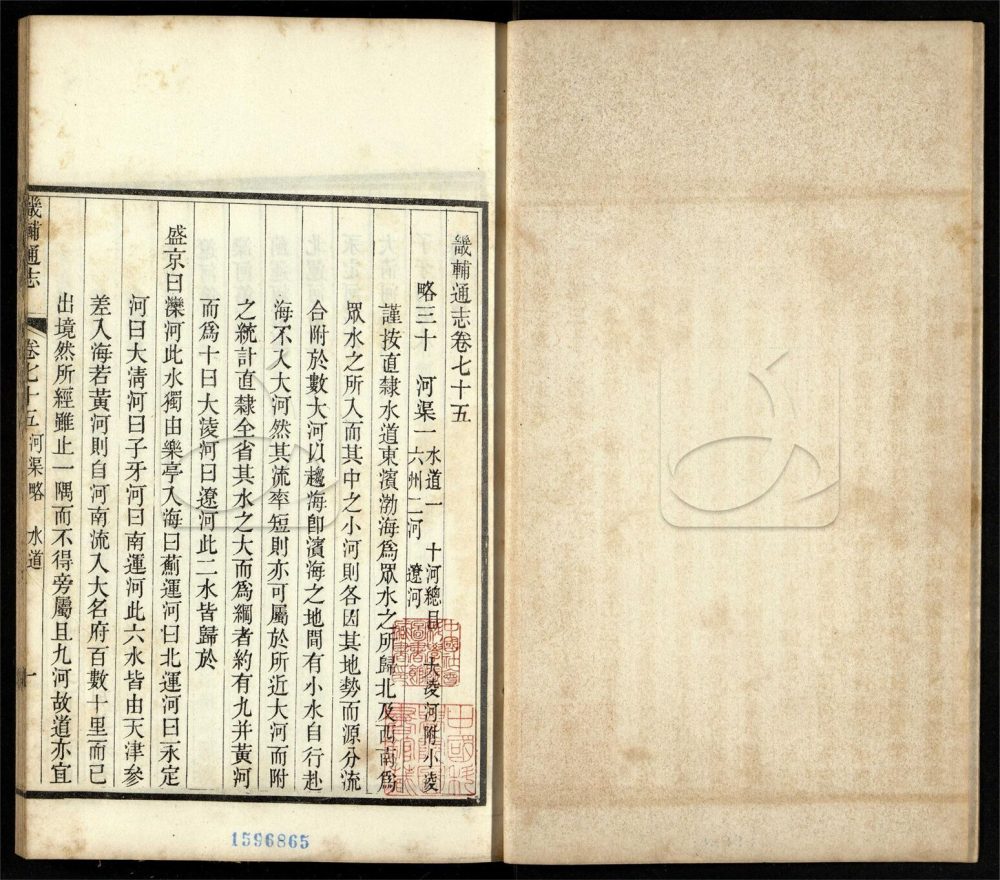 畿輔通志卷七十五
略三十　河渠一　水道一　十河總目　大凌河附小凌
六州二河　遼河
謹按直隸水道東濱渤海爲眾水之所歸北及西南爲
眾水之所入而其中之小河則各因其地勢而源分流
合附於數大河以趨海卽濱海之地間有小水自行赴
海不入大河然其流率短則亦可屬於所近大河而附
之統計直隸全省其水之大而爲綱者約有九并黃河
而爲十曰大淩河曰遼河此二水皆歸於
盛京曰灤河此水獨由樂亭入海曰薊運河曰北運河曰永定
河曰大淸河曰子牙河曰南運河此六水皆由天津參
差入海若黃河則自河南流入大名府百數十里而已
出境然所經雖止一隅而不得旁屬且九河故道亦宜
畿輔通志
卷七十五　河渠略　水道　一
1596865